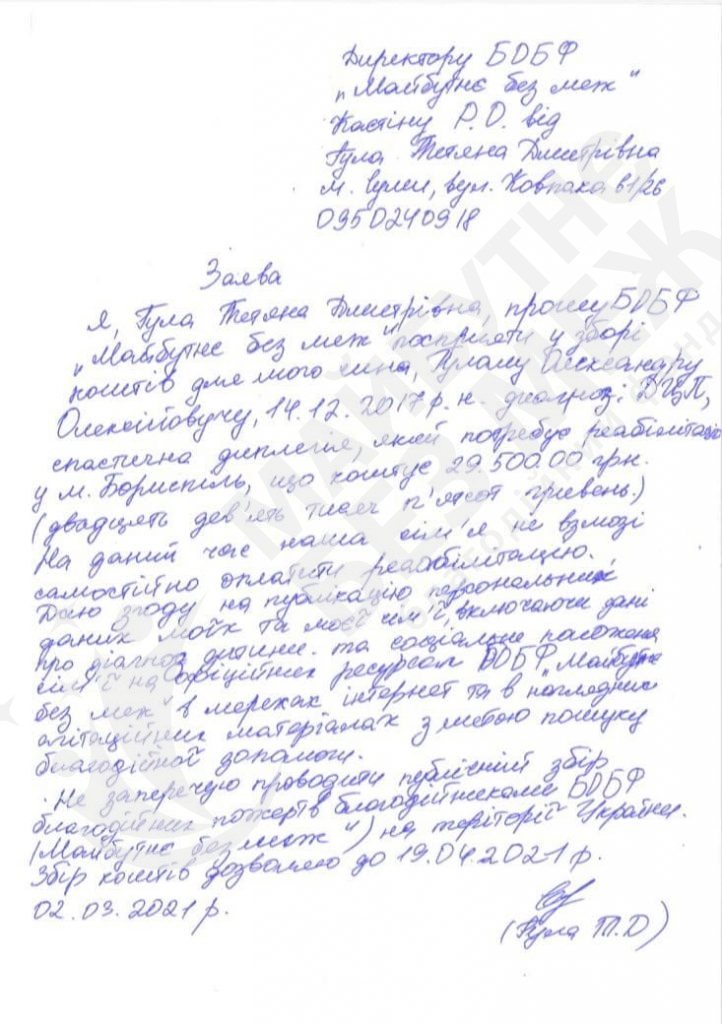 Директору БДБФ
„Майбутнє без меж"
Костіну Р.О. від
Гула Тетяна Дмитрівна
м. Суми, вул. Ковпака 81/26
0950240918
Заява
Я, Гула Тетяна Дмитрівна, прошу БДБФ
„Майбутнє без меж" посприяти у зборі
коштів для мого сина, Гулому Олександру
Олексійовучу, 14.12.2017р.н. диагноз: ДЦП,
спастична диплегія, який потребує реабілітацію
у м. Бориспіль, що коштує 29.500.00 грн.
(двадцять дев'ять тисяч п'ятсот гривень.)
На даний час наша сім'я не взмозі
самостійно оплатити реабілітацію.
Даю згоду на публікацію персональних
даних моїх та моєї сім'ї, включаючи дані
про діагноз дитини. та соціальне положення
сім'ї на офіційних ресурсах БДБФ „Майбутнє
без меж" в мережах інтернет та в наглядних
агітаційних матеріалах з метою пошуку
благодійної допомоги.
Не заперечую проводити публічний збір
благодійних пожертв благодійниками БДБФ
(Майбутнє без меж") на території України.
Збір коштів дозволяю до 19.04.2021 р.
02.03.2021 р.
(Гула Т.Д)
МАЙБУТНЄ
БЕЗ МЕЖ